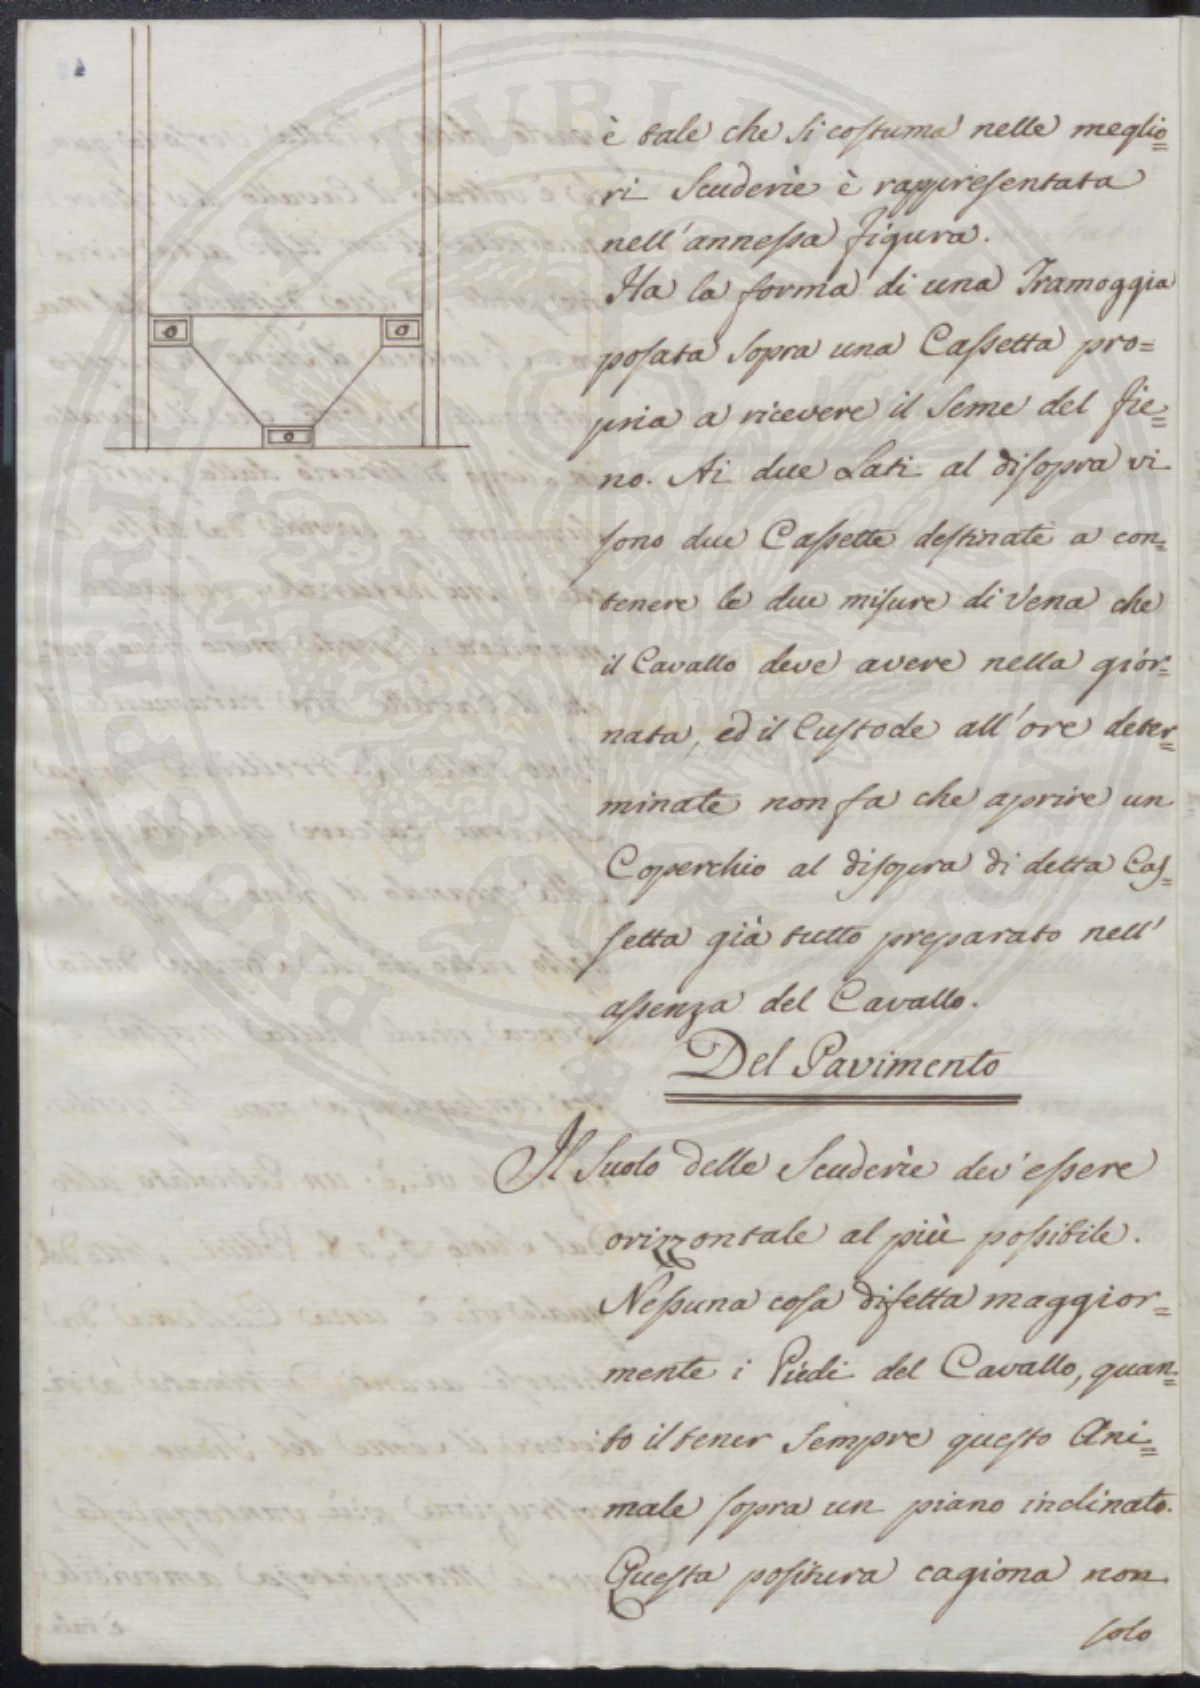 è tale che si costuma nelle meglio=
ri Scuderìe è rappresentata
nell'annessa figura.
Ha la forma di una Tramoggia
posata sopra una Cassetta pro=
pria a ricevere il Seme del fie=
no. Ai due Lati al disopra vi
sono due Cassette destinate a con=
tenere le due misure di Vena che
il Cavallo deve avere nella gior=
nata, ed il Custode all'ore deter=
minate non fa che aprire un
Coperchio al disopra di detta Cas=
setta già tutto preparato nell'
assenza del Cavallo.
Del Pavimento
Il Suolo delle Scuderìe dev'essere
orizzontale al più possibile.
Nessuna cosa difetta maggior=
mente i Piedi del Cavallo, quan=
to il tener sempre questo Ani=
male sopra un piano inclinato.
Questa positura cagiona non
solo